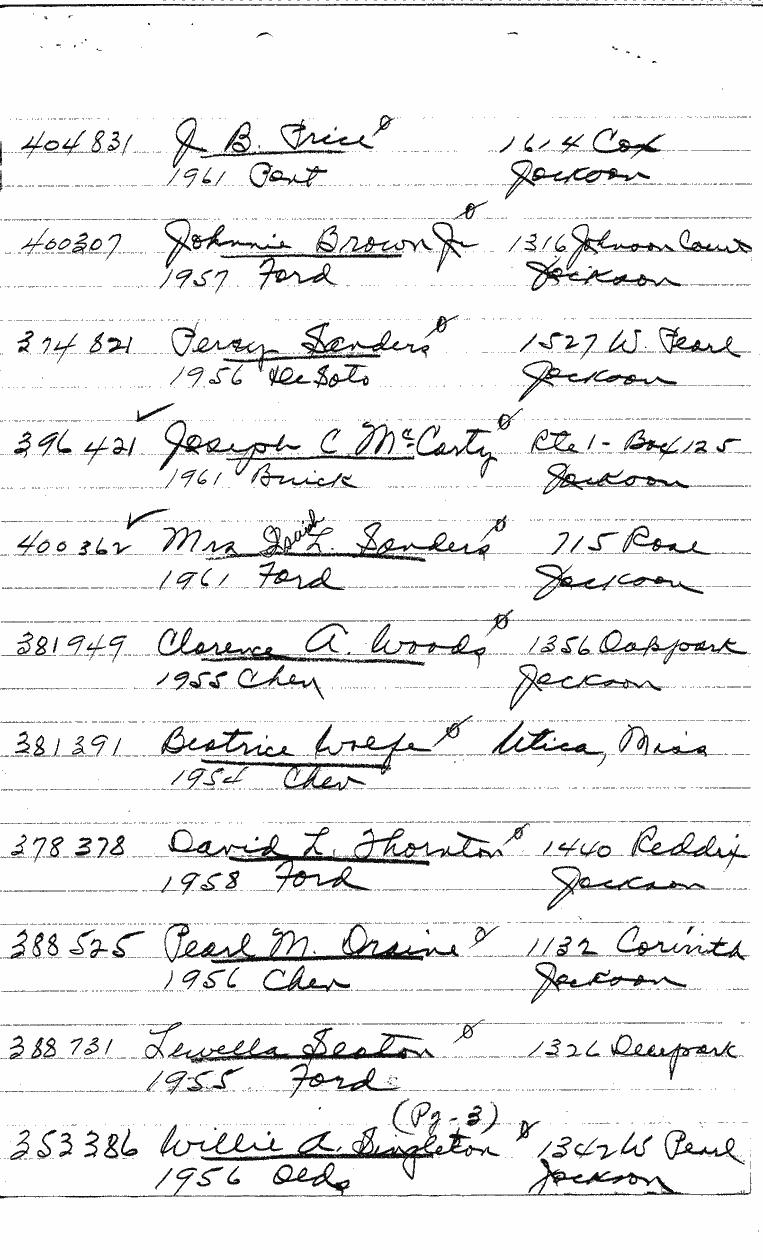 404831 J. B. Price 1614 Cox
1961 Pont Jackson
400307 Johnnie Brown Jr 1316 Johnson Court
1957 Ford Jackson
374821 Percy Sanders 1527 W. Pearl
1956 DeSoto Jackson
396421 Joseph C McCarty Rte 1 - Box 125
1961 Buick Jackson
400362 Mrs L. Sanders 715 Rose
1961 Ford Jackson
381949 Clarence A. Woods 1356 Oakpark
1955 Chev Jackson
381391 Beatrice Wolfe Utica, Miss
1954 Chev
378378 David L. Thornton 1440 Reddix
1958 Ford Jackson
388525 Pearl M. Draine 1132 Corinth
1956 Chev Jackson
388731 Lewella Seaton 1326 Deerpark
1955 Ford
(Pg-3)
353386 Willie A. Singleton 1342 W Pearl
1956 Olds Jackson